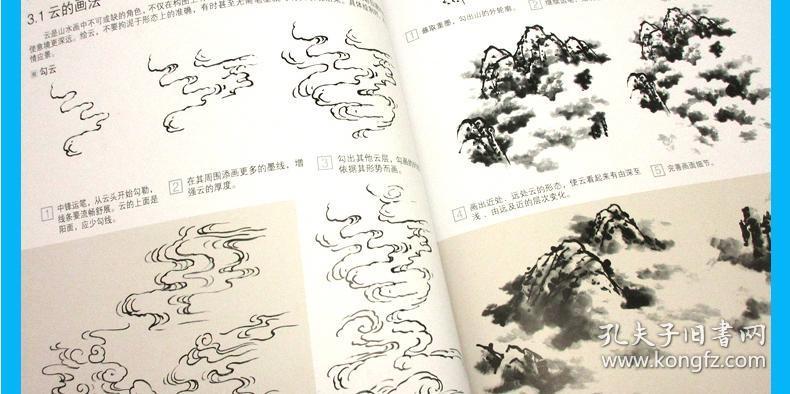 3.1 云的画法
云是山水画中不可或缺的角色，不仅在构图上
使意境更深远。绘云，不要拘泥于形态上的准确，有时甚至无需笔墨
情应景。
勾云
1 中锋运笔，从云头开始勾勒，
线条要流畅舒展。云的上面是
阳面，应少勾线。
2 在其周围添画更多的墨线，增
强云的厚度。
3 勾出其他云层，勾画的
依据其形势而画。
1 蘸取重墨，勾出山的外轮廓。
2
4 画出近处、远处云的形态，使云看起来有由深至
浅、由远及近的层次变化。
5 完善画面细节。
孔夫子旧书网
www.kongfz.com